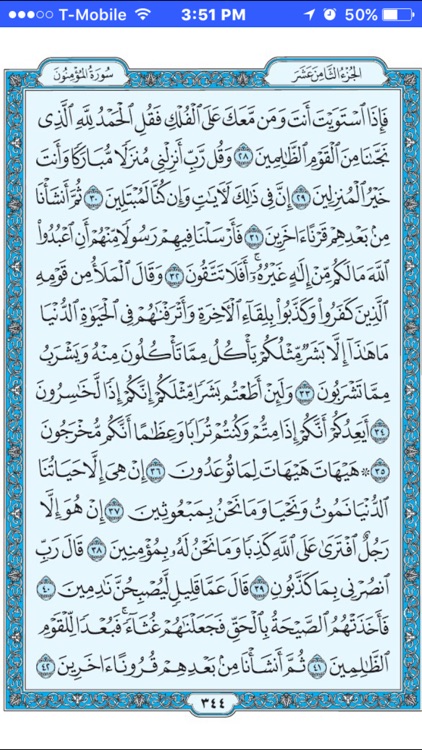 T-Mobile 3:51 PM 50%
الجزء الثامن عشر سورة المؤمنون
فَإِذَا ٱسْتَوَيْتَ أَنتَ وَمَن مَّعَكَ عَلَى ٱلْفُلْكِ فَقُلِ ٱلْحَمْدُ لِلَّهِ ٱلَّذِى
نَجَّىٰنَا مِنَ ٱلْقَوْمِ ٱلظَّـٰلِمِينَ ٢٨ وَقُل رَّبِّ أَنزِلْنِى مُنزَلًا مُّبَارَكًا وَأَنتَ
خَيْرُ ٱلْمُنزِلِينَ ٢٩ إِنَّ فِى ذَٰلِكَ لَـَٔايَـٰتٍ وَإِن كُنَّا لَمُبْتَلِينَ ٣٠ ثُمَّ أَنشَأْنَا
مِنۢ بَعْدِهِمْ قَرْنًا ءَاخَرِينَ ٣١ فَأَرْسَلْنَا فِيهِمْ رَسُولًا مِّنْهُمْ أَنِ ٱعْبُدُوا۟
ٱللَّهَ مَا لَكُم مِّنْ إِلَـٰهٍ غَيْرُهُۥٓ ۖ أَفَلَا تَتَّقُونَ ٣٢ وَقَالَ ٱلْمَلَأُ مِن قَوْمِهِ
ٱلَّذِينَ كَفَرُوا۟ وَكَذَّبُوا۟ بِلِقَآءِ ٱلْـَٔاخِرَةِ وَأَتْرَفْنَـٰهُمْ فِى ٱلْحَيَوٰةِ ٱلدُّنْيَا
مَا هَـٰذَآ إِلَّا بَشَرٌ مِّثْلُكُمْ يَأْكُلُ مِمَّا تَأْكُلُونَ مِنْهُ وَيَشْرَبُ
مِمَّا تَشْرَبُونَ ٣٣ وَلَئِنْ أَطَعْتُم بَشَرًا مِّثْلَكُمْ إِنَّكُمْ إِذًا لَّخَـٰسِرُونَ
٣٤ أَيَعِدُكُمْ أَنَّكُمْ إِذَا مِتُّمْ وَكُنتُمْ تُرَابًا وَعِظَـٰمًا أَنَّكُم مُّخْرَجُونَ
٣٥ ۞ هَيْهَاتَ هَيْهَاتَ لِمَا تُوعَدُونَ ٣٦ إِنْ هِىَ إِلَّا حَيَاتُنَا
ٱلدُّنْيَا نَمُوتُ وَنَحْيَا وَمَا نَحْنُ بِمَبْعُوثِينَ ٣٧ إِنْ هُوَ إِلَّا
رَجُلٌ ٱفْتَرَىٰ عَلَى ٱللَّهِ كَذِبًا وَمَا نَحْنُ لَهُۥ بِمُؤْمِنِينَ ٣٨ قَالَ رَبِّ
ٱنصُرْنِى بِمَا كَذَّبُونِ ٣٩ قَالَ عَمَّا قَلِيلٍ لَّيُصْبِحُنَّ نَـٰدِمِينَ ٤٠
فَأَخَذَتْهُمُ ٱلصَّيْحَةُ بِٱلْحَقِّ فَجَعَلْنَـٰهُمْ غُثَآءً ۚ فَبُعْدًا لِّلْقَوْمِ
ٱلظَّـٰلِمِينَ ٤١ ثُمَّ أَنشَأْنَا مِنۢ بَعْدِهِمْ قُرُونًا ءَاخَرِينَ ٤٢
٣٤٤